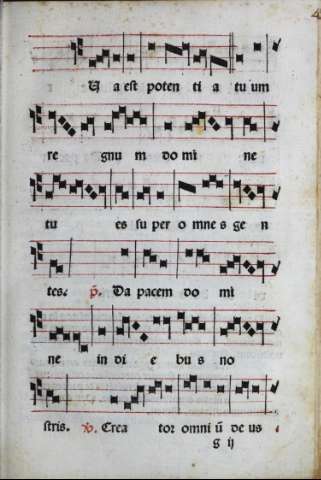 U a est poten ti a tu um
re gnu m do mi ne
tu es su per o mnes gen
tes. p̄. Da pacem do mi
ne in di e bus no
stris. ꝟ. Crea tor omni ū de us
g ij